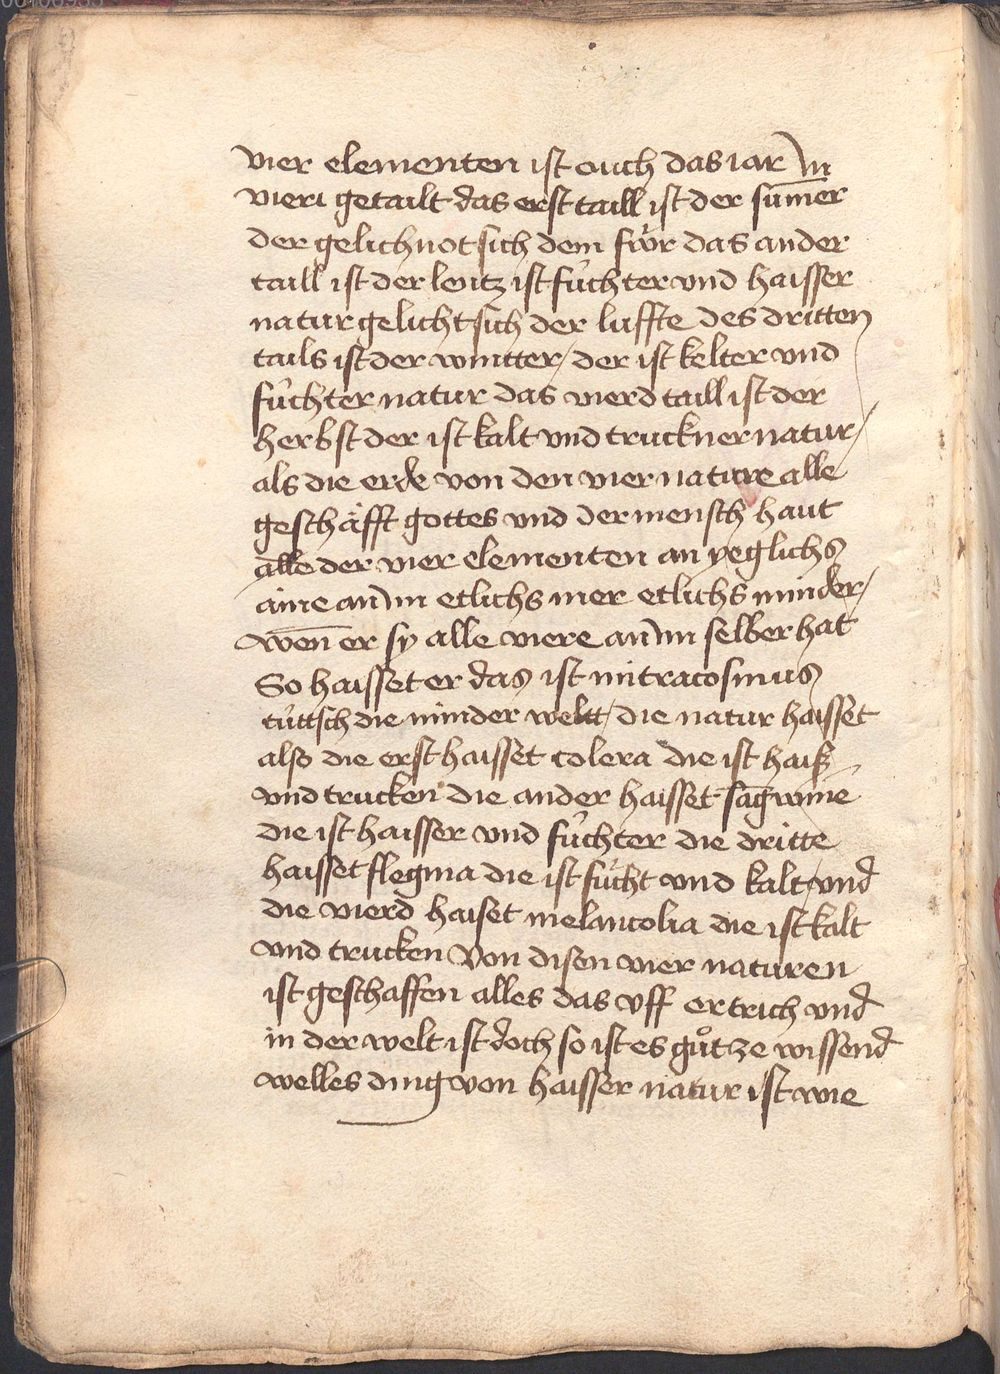 vier elementen ist ouch das iar in
vieri getailt das erst taill ist der sum̄er
der gelichnot sich dem fwͤr das ander
taill ist der lentz ist fuͤchter vnd haisser
natur gelicht sich der luffte des dritten
tails ist der wintter / der ist kelter vnd
fuͤchter natur das vierd taill ist der
herbst der ist kalt vnd truckner natur /
als die erde von den vier nature alle
geschäfft gottes vnd der mensch haut
alle der vier elementen an yeglichs
aine an im etlichs mer etlichs minder /
wen̄ er sy alle viere an im selber hat
So haisset er das ist mitracosmus
tuͤttsch die minder weltt / die natur haisset
also die erst haisset colera die ist haiß
vnd trucken die ander haisset sāgwine
die ist haisser vnd fuͤchter die dritte
haisset flegma die ist fuͤcht vnd kalt / vnd
die vierd haiset melancolia die ist kalt
vnd trucken Von disen vier naturen
ist geschaffen alles das vff ertrich vnd
in der welt ist doch so ist es guͦt ze wissend
welles ding von haisser natur ist wie